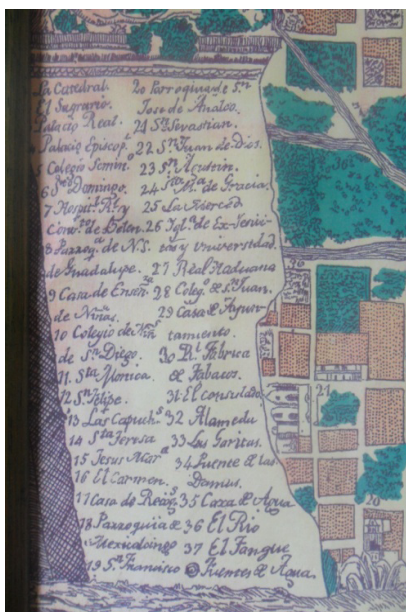 La Catedral.
El Sagrario.
Palacio Real.
Palacio Episcop.
5 Colegio Semin.º
6 Sto Domingo.
7 Hospit.l R.l y
Conv.to de Belen.
8 Parroq.a de N.S.
de Guadalupe.
9 Casa de Enseñ.za
de Niñas.
10 Colegio de Niñ.s
de S.n Diego.
11 S.ta Monica.
12 S.n Felipe.
13 Las Capuch.s
14 S.ta Teresa
15 Jesus Mar.a
16 El Carmen.
17 Casa de Recog.s
18 Parroquia de
Mexicalcingo
19 S.n Francisco
20 Parroquia de S.n
Jose de Analco.
21 S.n Sevastian.
22 S.n Juan de Dios.
23 S.n Agustin.
24 S.ta M.a de Gracia.
25 La Merced
26 Igl.a de Ex-Jesui-
tas y universidad.
27 Real Haduana
28 Coleg.o de S.n Juan.
29 Casa de Ayun-
tamiento.
30 R.l Fabrica
de Tabacos.
31 El consulado
32 Alameda
33 Las Garitas.
34 Puente de las
Damas.
35 Caxa de Agua
36 El Rio
37 El Tanque
Fuentes de Agua.
20
21
20